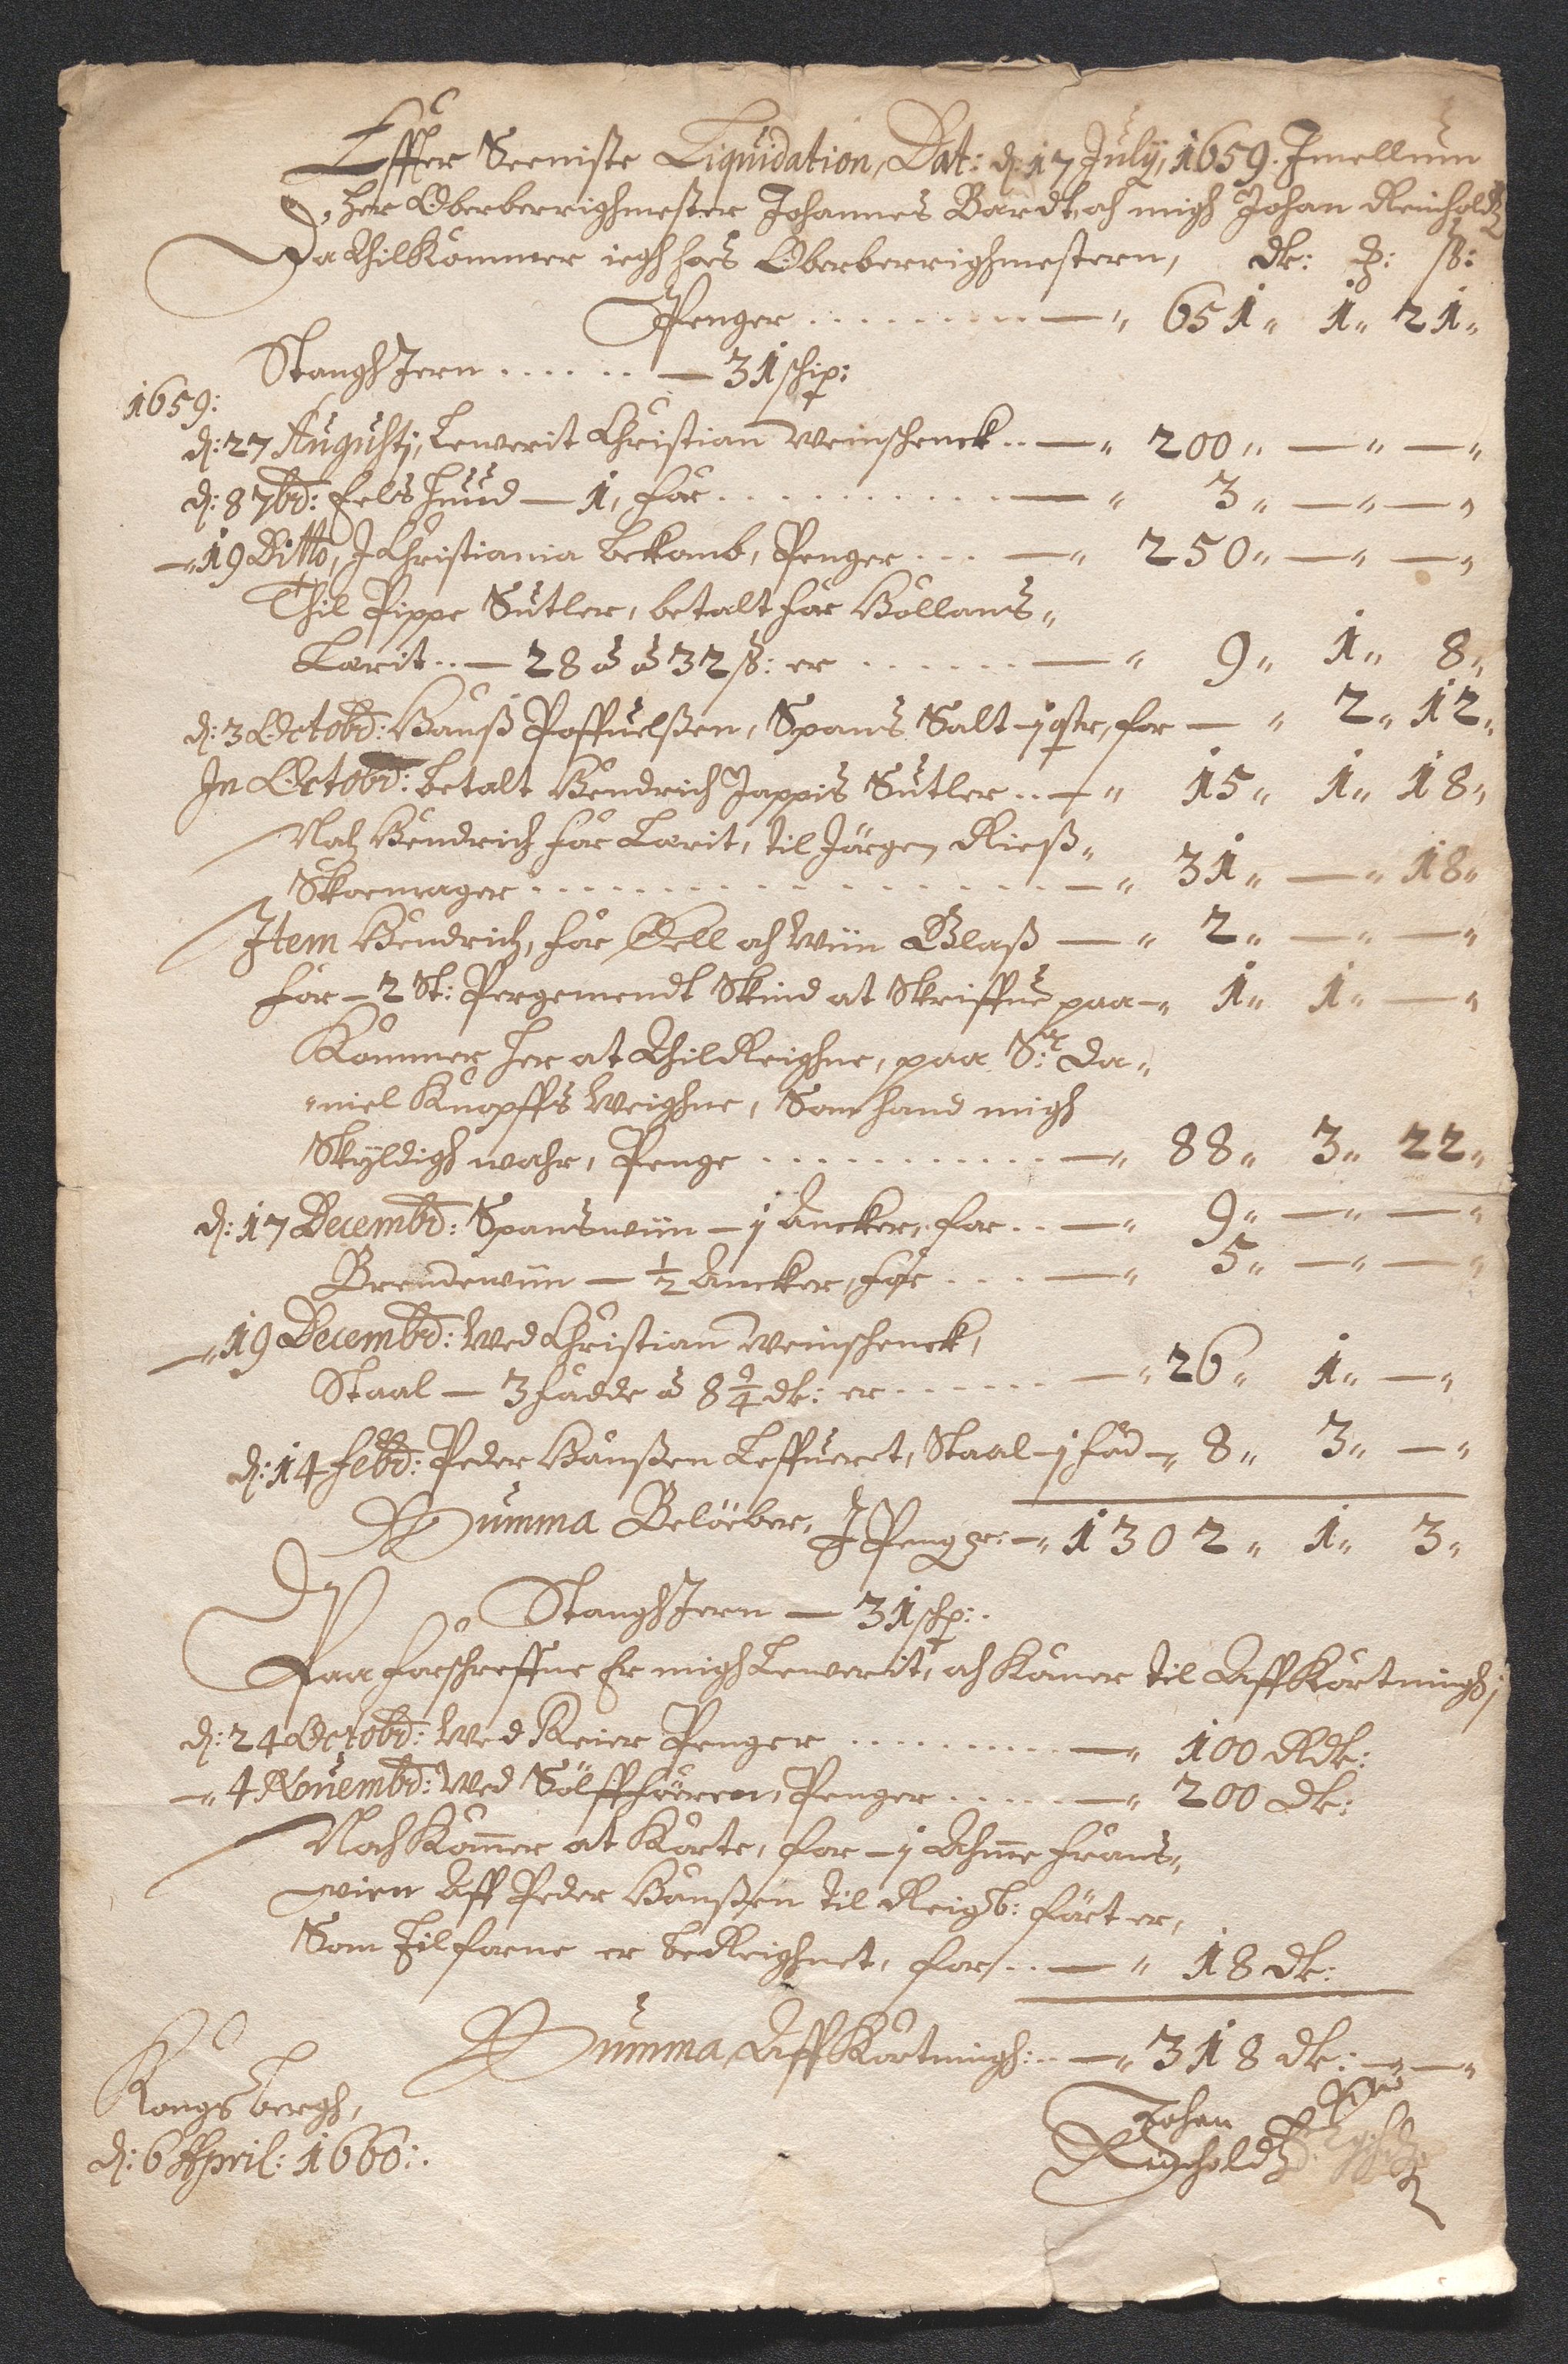 Effter Seeniste Liquidation, Dat: d: 17 July, 1659. Imellum
Her Oberberrighmester Johannes Bardt, och migh Johan Reinholdt
Da Thilkommer iegh hoes Oberberrighmestern, dr: ß:
Penger . . . . . . . . . — „ 651 „ 1 „ 21 „
StanghJern . . . . . . — 31 schip:
1659:
d: 27 Augusti, Lewerit Christian Weinschenck . . — „ 200 „ — „ — „
d: 8 7br: Huud — 1, for . . . . . . . . . . — „ 3 „ — „ — „
— „ 19 Ditto, I Christiania bekomb, Penger . . . — „ 250 „ — „ — „
Thil Pippe Sutler, betalt for Hollans „
Lerit . . — 28 a 32 ß: er . . . . . . . — „ 9 „ 1 „ 8 „
d: 3 Octobr: Hanß Poffuelßen, Spans Salt — j qtr, for — „ 2 „ 12 „
In Octobr: betalt Hendrich Jappis Sutler . . — „ 15 „ 1 „ 18 „
Noch Hendrich for Lerit, til Jörgen Rieß „
Skoemager . . . . . . . . . . . . . . . . — „ 31 „ — „ 18 „
Item Hendrich, for Oell och Wiin Glaß — „ 2 „ — „ — „
for — 2 St: Pergemendt Skind at Skriffue paa — „ 1 „ 1 „ — „
Kommer her at Thilreighne, paa Sr: Da „
„ niel Knopffs Weighne, Som hand migh
Skyldigh wahr, Penge . . . . . . . . . . — „ 88 „ 3 „ 22 „
d: 17 Decembr: Spanswiin — j Ancker, for . . — „ 9 „ — „ — „
Brendewiin — ½ Ancker, for . . . — „ 5 „ — „ — „
— „ 19 Decembr: Wed Christian Weinschenck,
Staal — 3 fadde a 8 ¾ dr: er . . . . . . — „ 26 „ 1 „ — „
d: 14 febr: Peder Hanßen Leffueret, Staal — j fad — „ 8 „ 3 „ — „
Summa Belöber, I Penger: — „ 1302 „ 1 „ 3 „
StanghJern — 31 schp: .
Paa forschreffne Er migh Lewerit, och Komer til Affkortningh,
d: 24 Octobr: Wed Reier Penger . . . . . . . . . — „ 100 Rdr:
— „ 4 Nouembr: Wed Sölffförren, Penger . . . . . — „ 200 dr:
Noch Komer at Korte, for — j Ahme frans „
wien Aff Peder Hanßen til Reigb: fört er,
Som tilforne er bereighnet, for . . — „ 18 dr:
Summa, Affkortningh: . . — „ 318 dr: — „ — „
Kongsbergh,
d: 6 April: 1660: .
Johan
Reinholdt